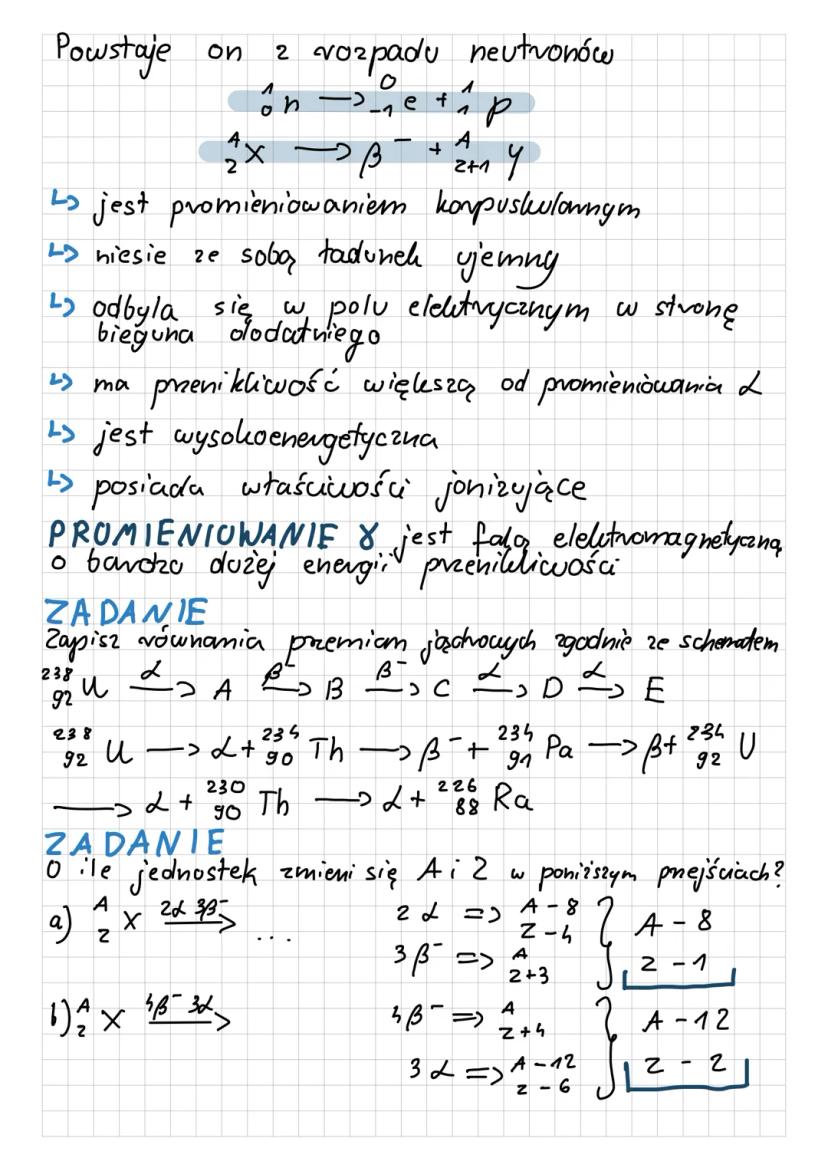 Powstaje on z rozpadu neutronów
¹₀n → ⁰₋₁e + ¹₁p
ᴬ_ZX → β⁻ + ᴬ_Z+1 Y
↳ jest promieniowaniem korpuskularnym
↳ niesie ze sobą ładunek ujemny
↳ odbyla się w polu elektrycznym w stronę
bieguna dodatniego
↳ ma przenikliwość większą od promieniowania α
↳ jest wysokoenergetyczna
↳ posiada właściwości jonizujące
PROMIENIOWANIE γ jest falą elektromagnetyczną
o bardzo dużej energii przenikliwości
ZADANIE
Zapisz równania przemian jądrowych zgodnie ze schematem
²³⁸₉₂U –α→ A –β⁻→ B –β⁻→ C –α→ D –α→ E
²³⁸₉₂U → α + ²³⁴₉₀Th → β⁻ + ²³⁴₉₁Pa → β + ²³⁴₉₂U
→ α + ²³⁰₉₀Th → α + ²²⁶₈₈Ra
ZADANIE
O ile jednostek zmieni się A i Z w poniższym przejściach?
a) ᴬ_ZX –2α 3β⁻→ ... 2α => A-8 Z-4 } A-8
3β⁻ => A Z+3 Z-1
b) ᴬ_ZX –4β⁻ 3α→ 4β⁻ => A Z+4 } A-12
3α => A-12 Z-6 Z-2